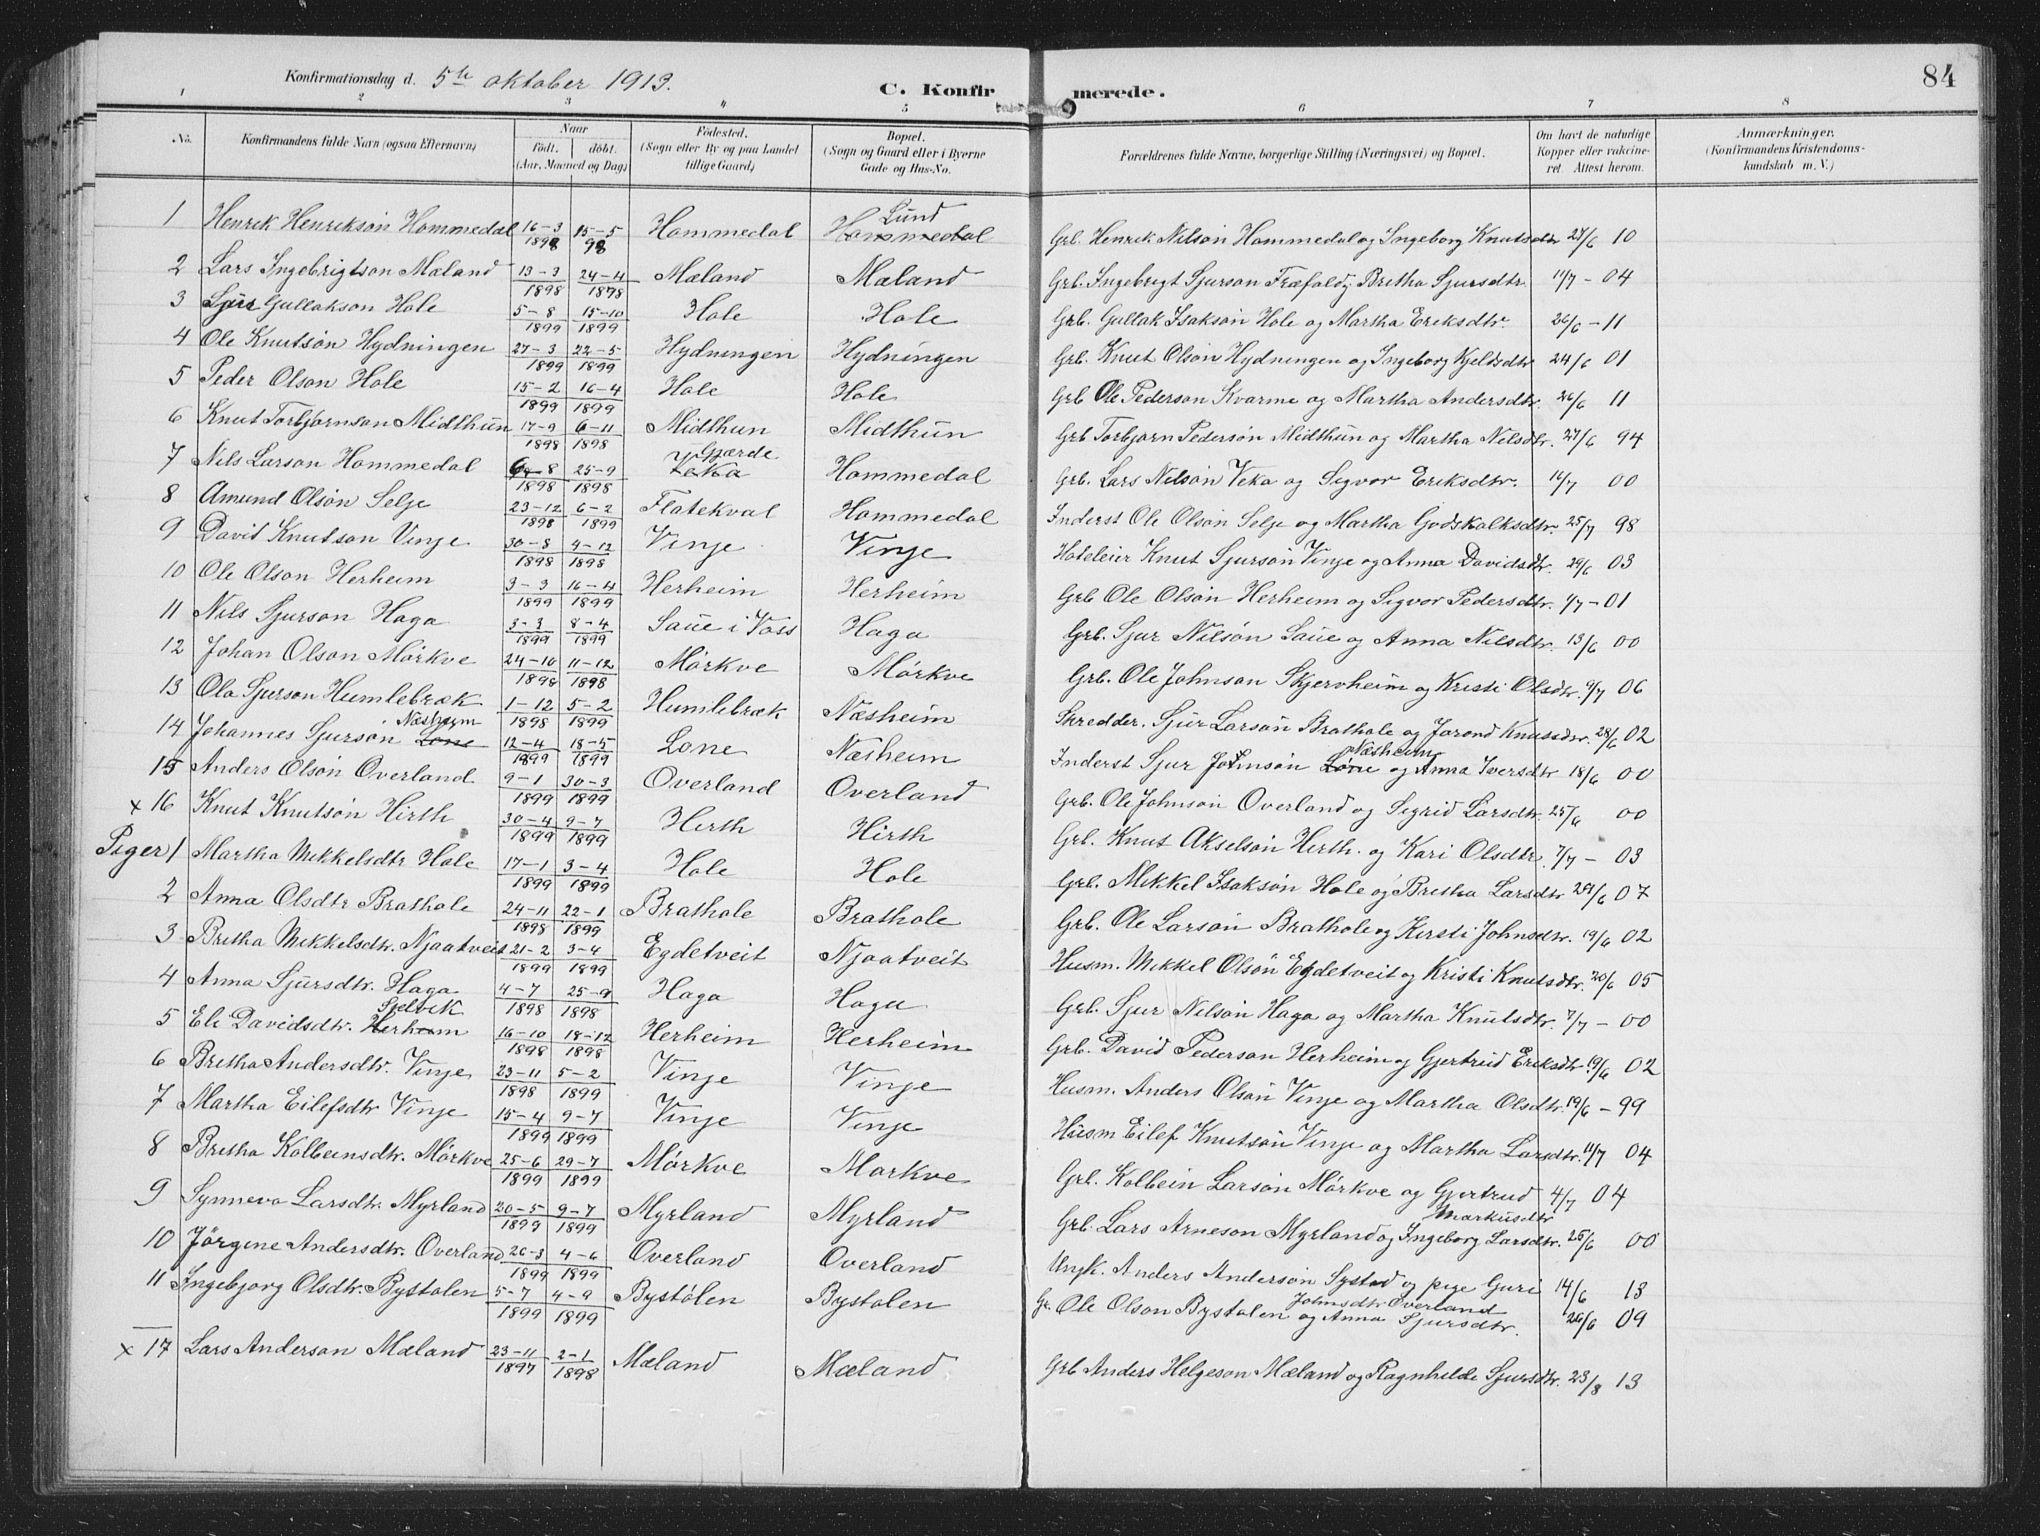 84
Konfirmationsdag d. 5te oktober 1913.
C. Konfirmerede.
1 2 3 4 5 6 7 8
No. Konfirmandens fulde Navn (ogsaa Efternavn) Naar født. døbt. (Aar, Maaned og Dag) Fødested. (Sogn eller By og paa Landet tillige Gaard) Bopæl. (Sogn og Gaard eller i Byerne Gade og Hus-No. Forældrenes fulde Navne, borgerlige Stilling (Næringsvei) og Bopæl. Om havt de naturlige Kopper eller vakcineret. Attest herom. Anmærkninger. (Konfirmandens Kristendomskundskab m. V.)
1 Henrik Henriksøn Hommedal 16-3 1898 15-5 98 Hommedal Lund Hommedal Grb. Henrik Nilsøn Hommedal og Ingeborg Knutsdtr 27/6 10
2 Lars Ingebrigtson Mæland 13-3 1898 24-4 1898 Mæland Mæland Grb. Ingebrigt Sjurson Bretha Sjursdtr 11/7 - 04
3 Sjur Gullakson Hole 5-8 1899 15-10 1899 Hole Hole Grb. Gullak Isaksøn Hole og Martha Eriksdtr. 26/6 - 11
4 Ole Knutsøn Hydningen 27-3 1899 22-5 1899 Hydningen Hydningen Grb. Knut Olsøn Hydningen og Ingeborg Kjelsdtr 24/6 01
5 Peder Olson Hole 15-2 1899 16-4 1899 Hole Hole Grb Ole Pederson Kvarme og Martha Andersdtr. 26/6 11
6 Knut Torbjørnson Midthun 17-9 1898 6-11 1898 Midthun Midthun Grb Torbjørn Pedersøn Midthun og Martha Nilsdtr. 27/6 94
7 Nils Larson Hommedal 8 1898 25-9 1898 Gjærde Veka Hommedal Grb. Lars Nilsøn Veka og Sigvor Eriksdtr. 14/7 00
8 Amund Olsøn Selje 23-12 1898 6-2 1899 Flatekval Hommedal Inderst Ole Olsøn Selje og Martha Godskalksdtr. 25/7 98
9 Davit Knutson Vinje 30-8 1898 4-12 1898 Vinje Vinje Hoteleier Knut Sjursøn Vinje og Anna Davidsdtr. 29/6 03
10 Ole Olson Herheim 3-3 1899 16-4 1899 Herheim Herheim Grb Ole Olsøn Herheim og Sigvor Pedersdtr. 4/7 - 01
11 Nils Sjurson Haga 3-3 1899 8-4 1899 Saue i Voss Haga Grb. Sjur Nilsøn Saue og Anna Nilsdtr. 13/6 00
12 Johan Olson Mørkve 24-10 1898 11-12 1898 Mørkve Mørkve Grb. Ole Johnson Skjerveheim og Kristi Olsdtr. 9/7 06
13 Ola Sjurson Humlebræk 1-12 1898 5-2 1899 Humlebræk Næsheim Skredder. Sjur Larsøn Brathole og Jorond Knutsdtr. 28/6 02
14 Johannes Sjursøn Næsheim Lone 12-4 1899 18-5 1899 Lone Næsheim Inderst Sjur Johnsøn Næsheim Lone og Anna Iversdtr 18/6 00
15 Anders Olsøn Overland 9-1 1899 30-3 1899 Overland Overland Grb. Ole Johnson Overland og Sigrid Larsdtr. 25/6 00
x 16 Knut Knutsøn Hirth 30-4 1899 9-7 1899 Hirth Hirth Grb. Knut Akselsøn Hirth. og Kari Olsdtr. 7/7 - 03
Piger 1 Martha Mikkelsdtr Hole 17-1 1899 3-4 1899 Hole Hole Grb. Mikkel Isaksøn Hole og Bretha Larsdtr 29/6 07
2 Anna Olsdtr Brathole 24-11 1898 22-1 1899 Brathole Brathole Grb. Ole Larsøn Brathole og Kersti Johnsdtr. 19/6 02
3 Bretha Mikkelsdtr. Njaatveit 21-2 1899 3-4 1899 Egdetveit Njaatveit Husm. Mikkel Olsøn Egdetveit og Kristi Knutsdtr. 20/6 05
4 Anna Sjursdtr. Haga 4-7 1898 25-9 1898 Haga Haga Grb. Sjur Nilsøn Haga og Martha Knutsdtr. 7/7 - 00
5 Eli Davidsdtr. Selvik Herheim 16-10 1898 18-12 1898 Herheim Herheim Grb. David Pederson Herheim og Gjertrud Eriksdtr 19/6 02
6 Bretha Andersdtr. Vinje 23-11 1898 5-2 1899 Vinje Vinje Husm. Anders Olsøn Vinje og Martha Olsdtr. 19/6 - 99
7 Martha Eilefsdtr Vinje 15-4 1899 9-7 1899 Vinje Vinje Husm Eilef Knutsøn Vinje og Martha Larsdtr. 11/7 04
8 Bretha Kolbeinsdtr. Mørkve 25-6 1899 29-7 1899 Mørkve Markve Grb. Kolbein Larsøn Mørkve og Gjertrud Markusdtr 4/7 04
9 Synneva Larsdtr. Myrland 20-5 1899 9-7 1899 Myrland Myrland Grb. Lars Arneson Myrland og Ingeborg Larsdtr. 25/6 00
10 Jørgine Andersdtr. Overland 26-3 1899 4-6 1899 Overland Overland Ungk. Anders Andersøn Systad og pige Guri Johnsdtr Overland 14/6 13
11 Ingebjorg Olsdtr. Bystølen 5-7 1899 4-9 1899 Bystølen Bystolen Gr. Ole Olson Bystolen og Anna Sjursdtr. 26/6 09
x 17 Lars Anderson Mæland 23-11 1897 2-1 1898 Mæland Mæland Grb Anders Helgeson Mæland og Ragnhilde Sjursdtr. 23/8 13